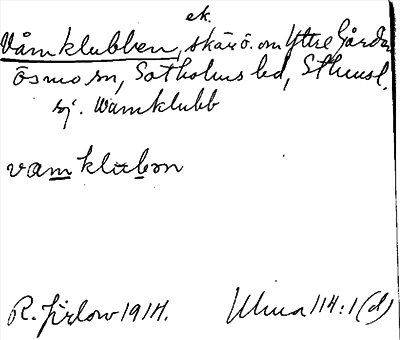 ek.
Våmklubben, skär ö. om Yttre Gården
Ösmo sn, Sotholms hd, Sthmsl.
sj. Wamklubb
vamklubən
R. Jirlow 1914. Ulma 114:1 (d)